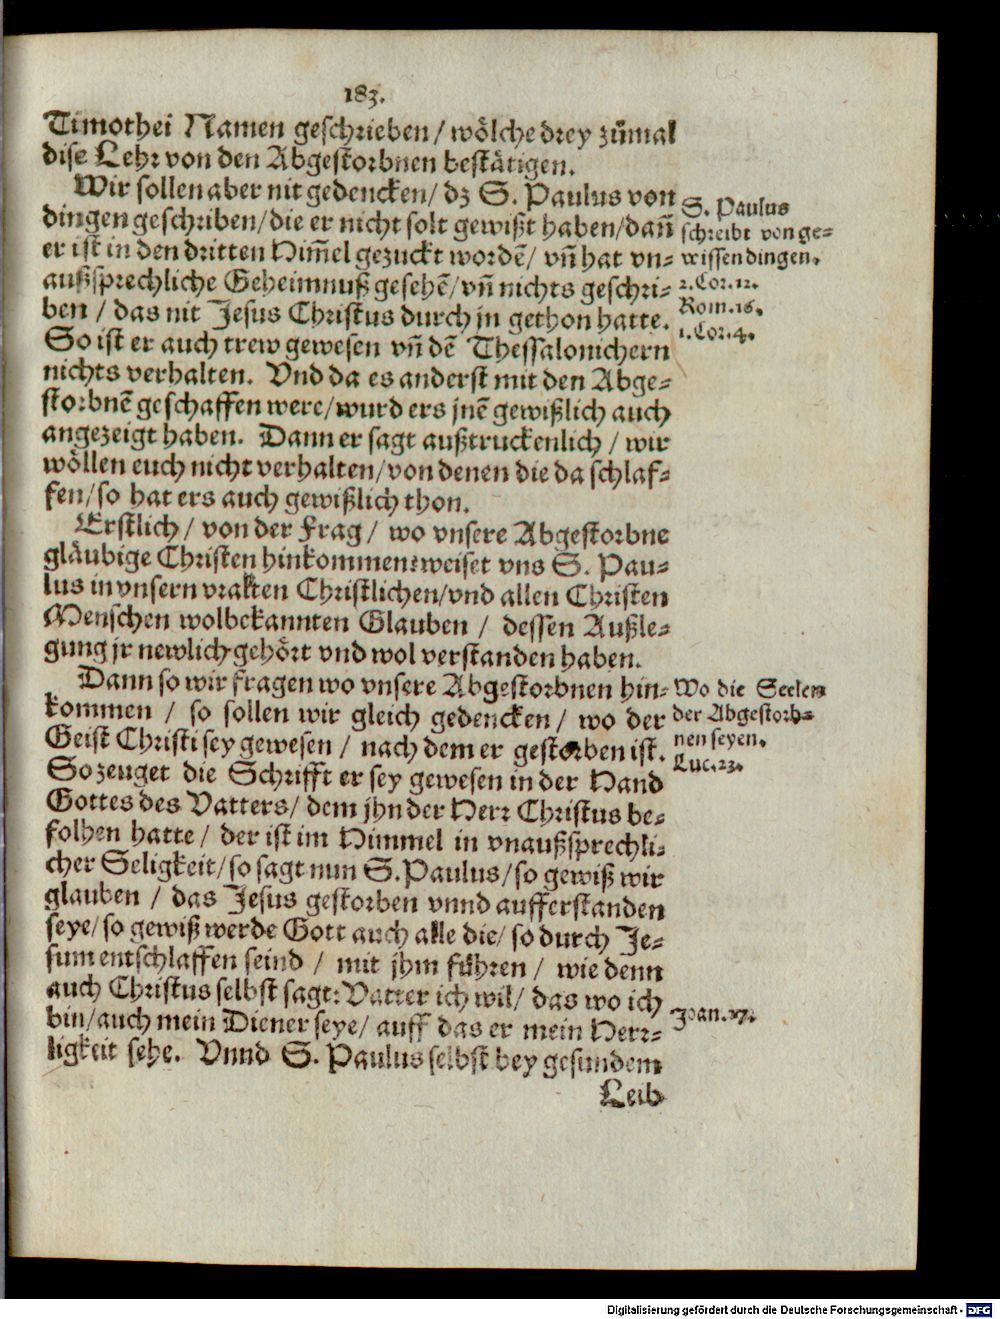 183.
Timothei Namen geschrieben/ wölche drey zůmal
dise Lehr von den Abgestorbnen bestätigen.
Wir sollen aber nit gedencken/ dz S. Paulus von
dingen geschriben/ die er nicht solt gewißt haben/ dañ
er ist in den dritten Him̃el gezuckt wordẽ/ vñ hat vn-
außsprechliche Geheimnuß gesehẽ/ vñ nichts geschri-
ben / das nit Jesus Christus durch jn gethon hatte.
So ist er auch trew gewesen vñ dẽ Thessalonichern
nichts verhalten. Vnd da es anderst mit den Abge-
storbnẽ geschaffen were/ wurd ers jnẽ gewißlich auch
angezeigt haben. Dann er sagt außtruckenlich / wir
wöllen euch nicht verhalten/ von denen die da schlaf-
fen/ so hat ers auch gewißlich thon.
Erstlich / von der Frag / wo vnsere Abgestorbne
gläubige Christen hinkommen: weiset vns S. Pau-
lus in vnsern vralten Christlichen/ vnd allen Christen
Menschen wolbekannten Glauben / dessen Außle-
gung jr newlich gehört vnd wol verstanden haben.
Dann so wir fragen wo vnsere Abgestorbnen hin-
kommen / so sollen wir gleich gedencken / wo der
Geist Christi sey gewesen / nach dem er gestorben ist.
So zeuget die Schrifft er sey gewesen in der Hand
Gottes des Vatters/ dem jhn der Herr Christus be-
folhen hatte / der ist im Himmel in vnaußsprechli-
cher Seligkeit/ so sagt nun S. Paulus/ so gewiß wir
glauben / das Jesus gestorben vnnd aufferstanden
seye/ so gewiß werde Gott auch alle die/ so durch Je-
sum entschlaffen seind / mit jhm führen / wie denn
auch Christus selbst sagt: Vatter ich wil/ das wo ich
bin/ auch mein Diener seye/ auff das er mein Herr-
ligkeit sehe. Vnnd S. Paulus selbst bey gesundem
Leib
S. Paulus
schreibt von ge-
wissen dingen.
2. Cor. 12.
Rom. 16.
1. Cor. 4.
Wo die Seelen
der Abgestorb-
nen seyen.
Luc. 23.
Joan. 17.
Digitalisierung gefördert durch die Deutsche Forschungsgemeinschaft - DFG